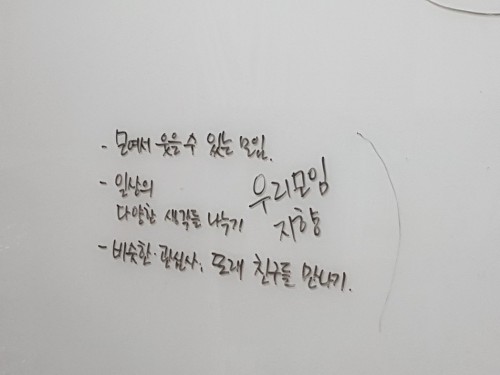 - 모여서 웃을 수 있는 모임.
- 일상의
다양한 생각들 나누기
- 비슷한·관심사, 또래 친구들 만나기.
우리모임
지향